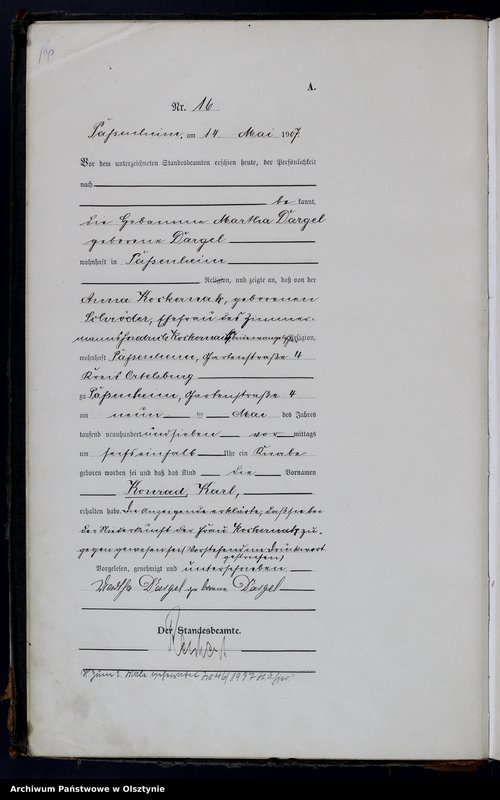 A.
Nr. 16
Paßenheim, am 14. Mai 1907.
Vor dem unterzeichneten Standesbeamten erschien heute, der Persönlichkeit
nach
be kannt,
die Hebamme Martha Dargel
geborene Dargel
wohnhaft in Paßenheim
Religion, und zeigte an, daß von der
Anna Kockernak, geborenen
Schröder, Ehefrau des Zimmer-
manns Friedrich Kockernak, Religion,
wohnhaft Paßenheim, Gartenstraße 4
Kreis Ortelsburg
zu Paßenheim, Gartenstraße 4
am neun ten Mai des Jahres
tausend neunhundert und sieben vor mittags
um sechseinhalb Uhr ein Knabe
geboren worden sei und daß das Kind die Vornamen
Konrad, Karl,
erhalten habe. Die Anzeigende erklärte, daß sie bei
der Niederkunft der Frau Kockernak zu-
gegen gewesen sei. Vorstehend ein Druckwort
gestrichen
Vorgelesen, genehmigt und unterschrieben.
Martha Dargel geborene Dargel
Der Standesbeamte.
Archiwum Państwowe w Olsztynie